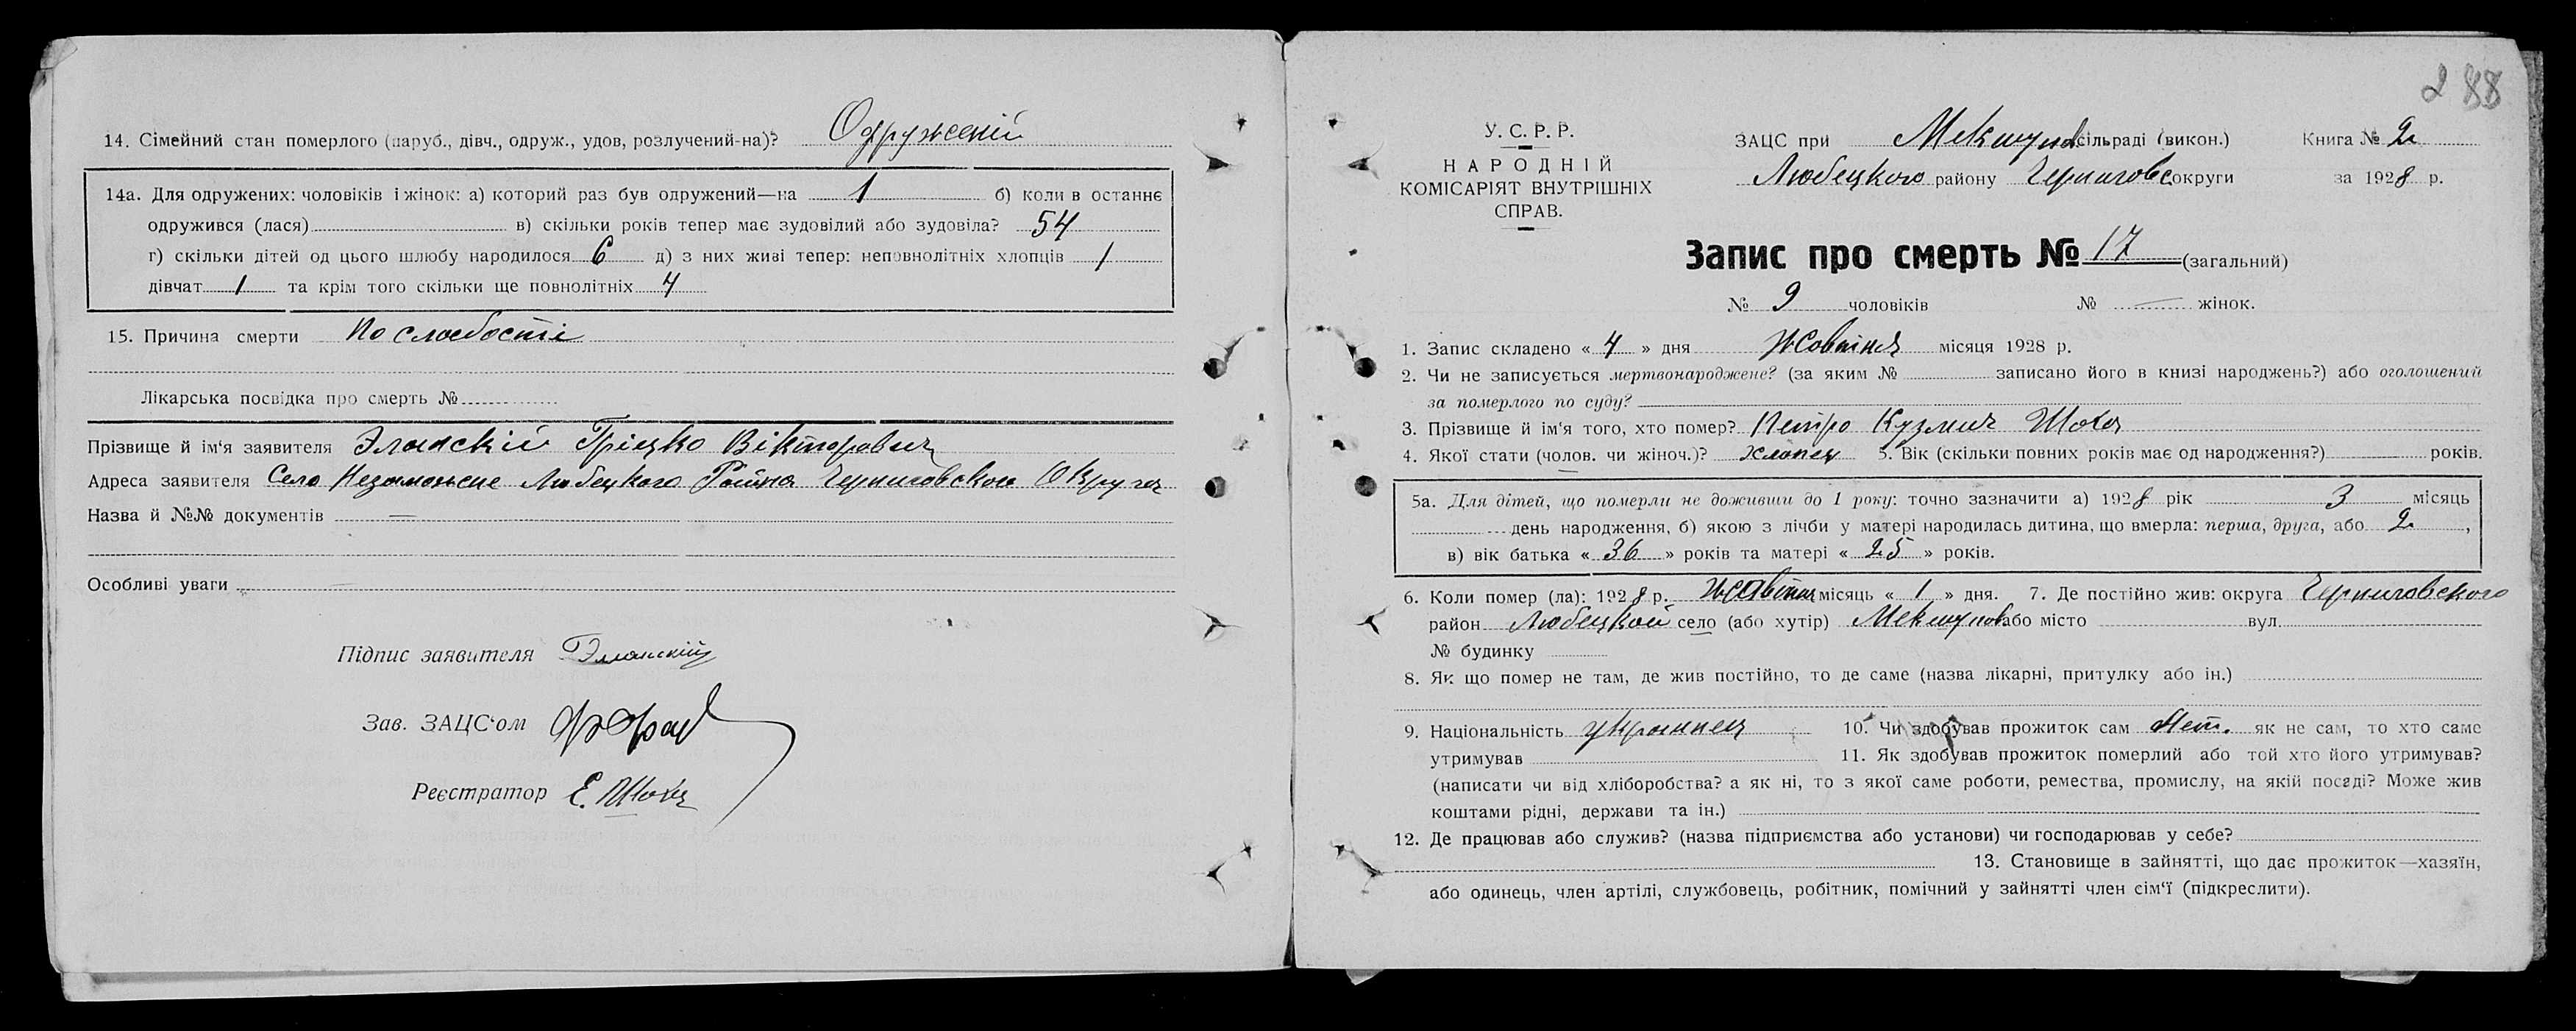 14. Сімейний стан померлого (паруб., дівч., одруж., удов, розлучений-на)? Одруженій
14а. Для одружених: чоловіків і жінок: а) который раз був одружений—на 1 б) коли в останнє
одружився (лася) в) скільки років тепер має зудовілий або зудовіла? 54
г) скільки дітей од цього шлюбу народилося 6 д) з них живі тепер: неповнолітніх хлопців 1
дівчат 1 та крім того скільки ще повнолітніх 4
15. Причина смерти по слабості
Лікарська посвідка про смерть №
Прізвище й ім'я заявителя Грицко Вікторович
Адреса заявителя Село Любецкого Района Черниговского Округа
Назва й №№ документів —
Особливі уваги
Підпис заявителя
Зав. ЗАЦС'ом
Реєстратор Е. Шоха
288
У. С. Р. Р.
НАРОДНІЙ
КОМІСАРІЯТ ВНУТРІШНІХ
СПРАВ.
ЗАЦС при сільраді (викон.) Книга № 2
Любецкого району Черниговс округи за 1928 р.
Запис про смерть № 17 (загальний)
№ 9 чоловіків № — жінок.
1. Запис складено « 4 » дня Жовтня місяця 1928 р.
2. Чи не записується мертвонароджене? (за яким № записано його в книзі народжень?) або оголошений
за померлого по суду?
3. Прізвище й ім'я того, хто помер? Петро Кузмич Шоха
4. Якої стати (чолов. чи жіноч.)? хлопец 5. Вік (скільки повних років має од народження?) років.
5а. Для дітей, що померли не доживши до 1 року: точно зазначити а) 1928 рік 3 місяць
день народження, б) якою з лічби у матері народилась дитина, що вмерла: перша, друга, або 2,
в) вік батька « 36 » років та матері « 25 » років.
6. Коли помер (ла): 1928 р. Жовтня місяць « 1 » дня. 7. Де постійно жив: округа Черниговского
район Любецкой село (або хутір) або місто вул.
№ будинку
8. Як що помер не там, де жив постійно, то де саме (назва лікарні, притулку або ін.)
9. Національність украинец 10. Чи здобував прожиток сам Нет. як не сам, то хто саме
утримував 11. Як здобував прожиток померлий або той хто його утримував?
(написати чи від хліборобства? а як ні, то з якої саме роботи, ремества, промислу, на якій посаді? Може жив
коштами рідні, держави та ін.)
12. Де працював або служив? (назва підприємства або установи) чи господарював у себе?
13. Становище в зайнятті, що дає прожиток—хазяїн,
або одинець, член артілі, службовець, робітник, помічний у зайнятті член сім'ї (підкреслити).